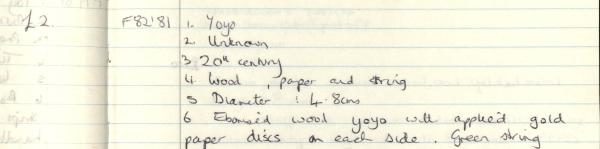 £2 F82'81 1. Yoyo
2. Unknown
3. 20th century
4. Wood, paper and string
5 Diameter : 4.8cms
6 Ebonised wood yoyo with applied gold
paper discs on each side. Green string